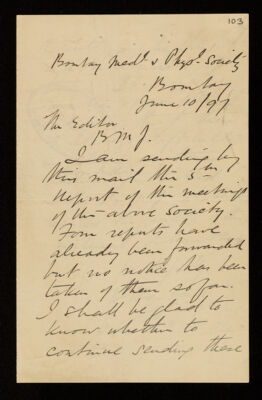 103
Bombay Medl. & Physl. Society
Bombay
June 10/97
The Editor
B M J.
I am sending by
this mail the 5th
report of the meetings
of the above society.
Four reports have
already been forwarded
but no notice has been
taken of them so far.
I shall be glad to
know whether to
continue sending these